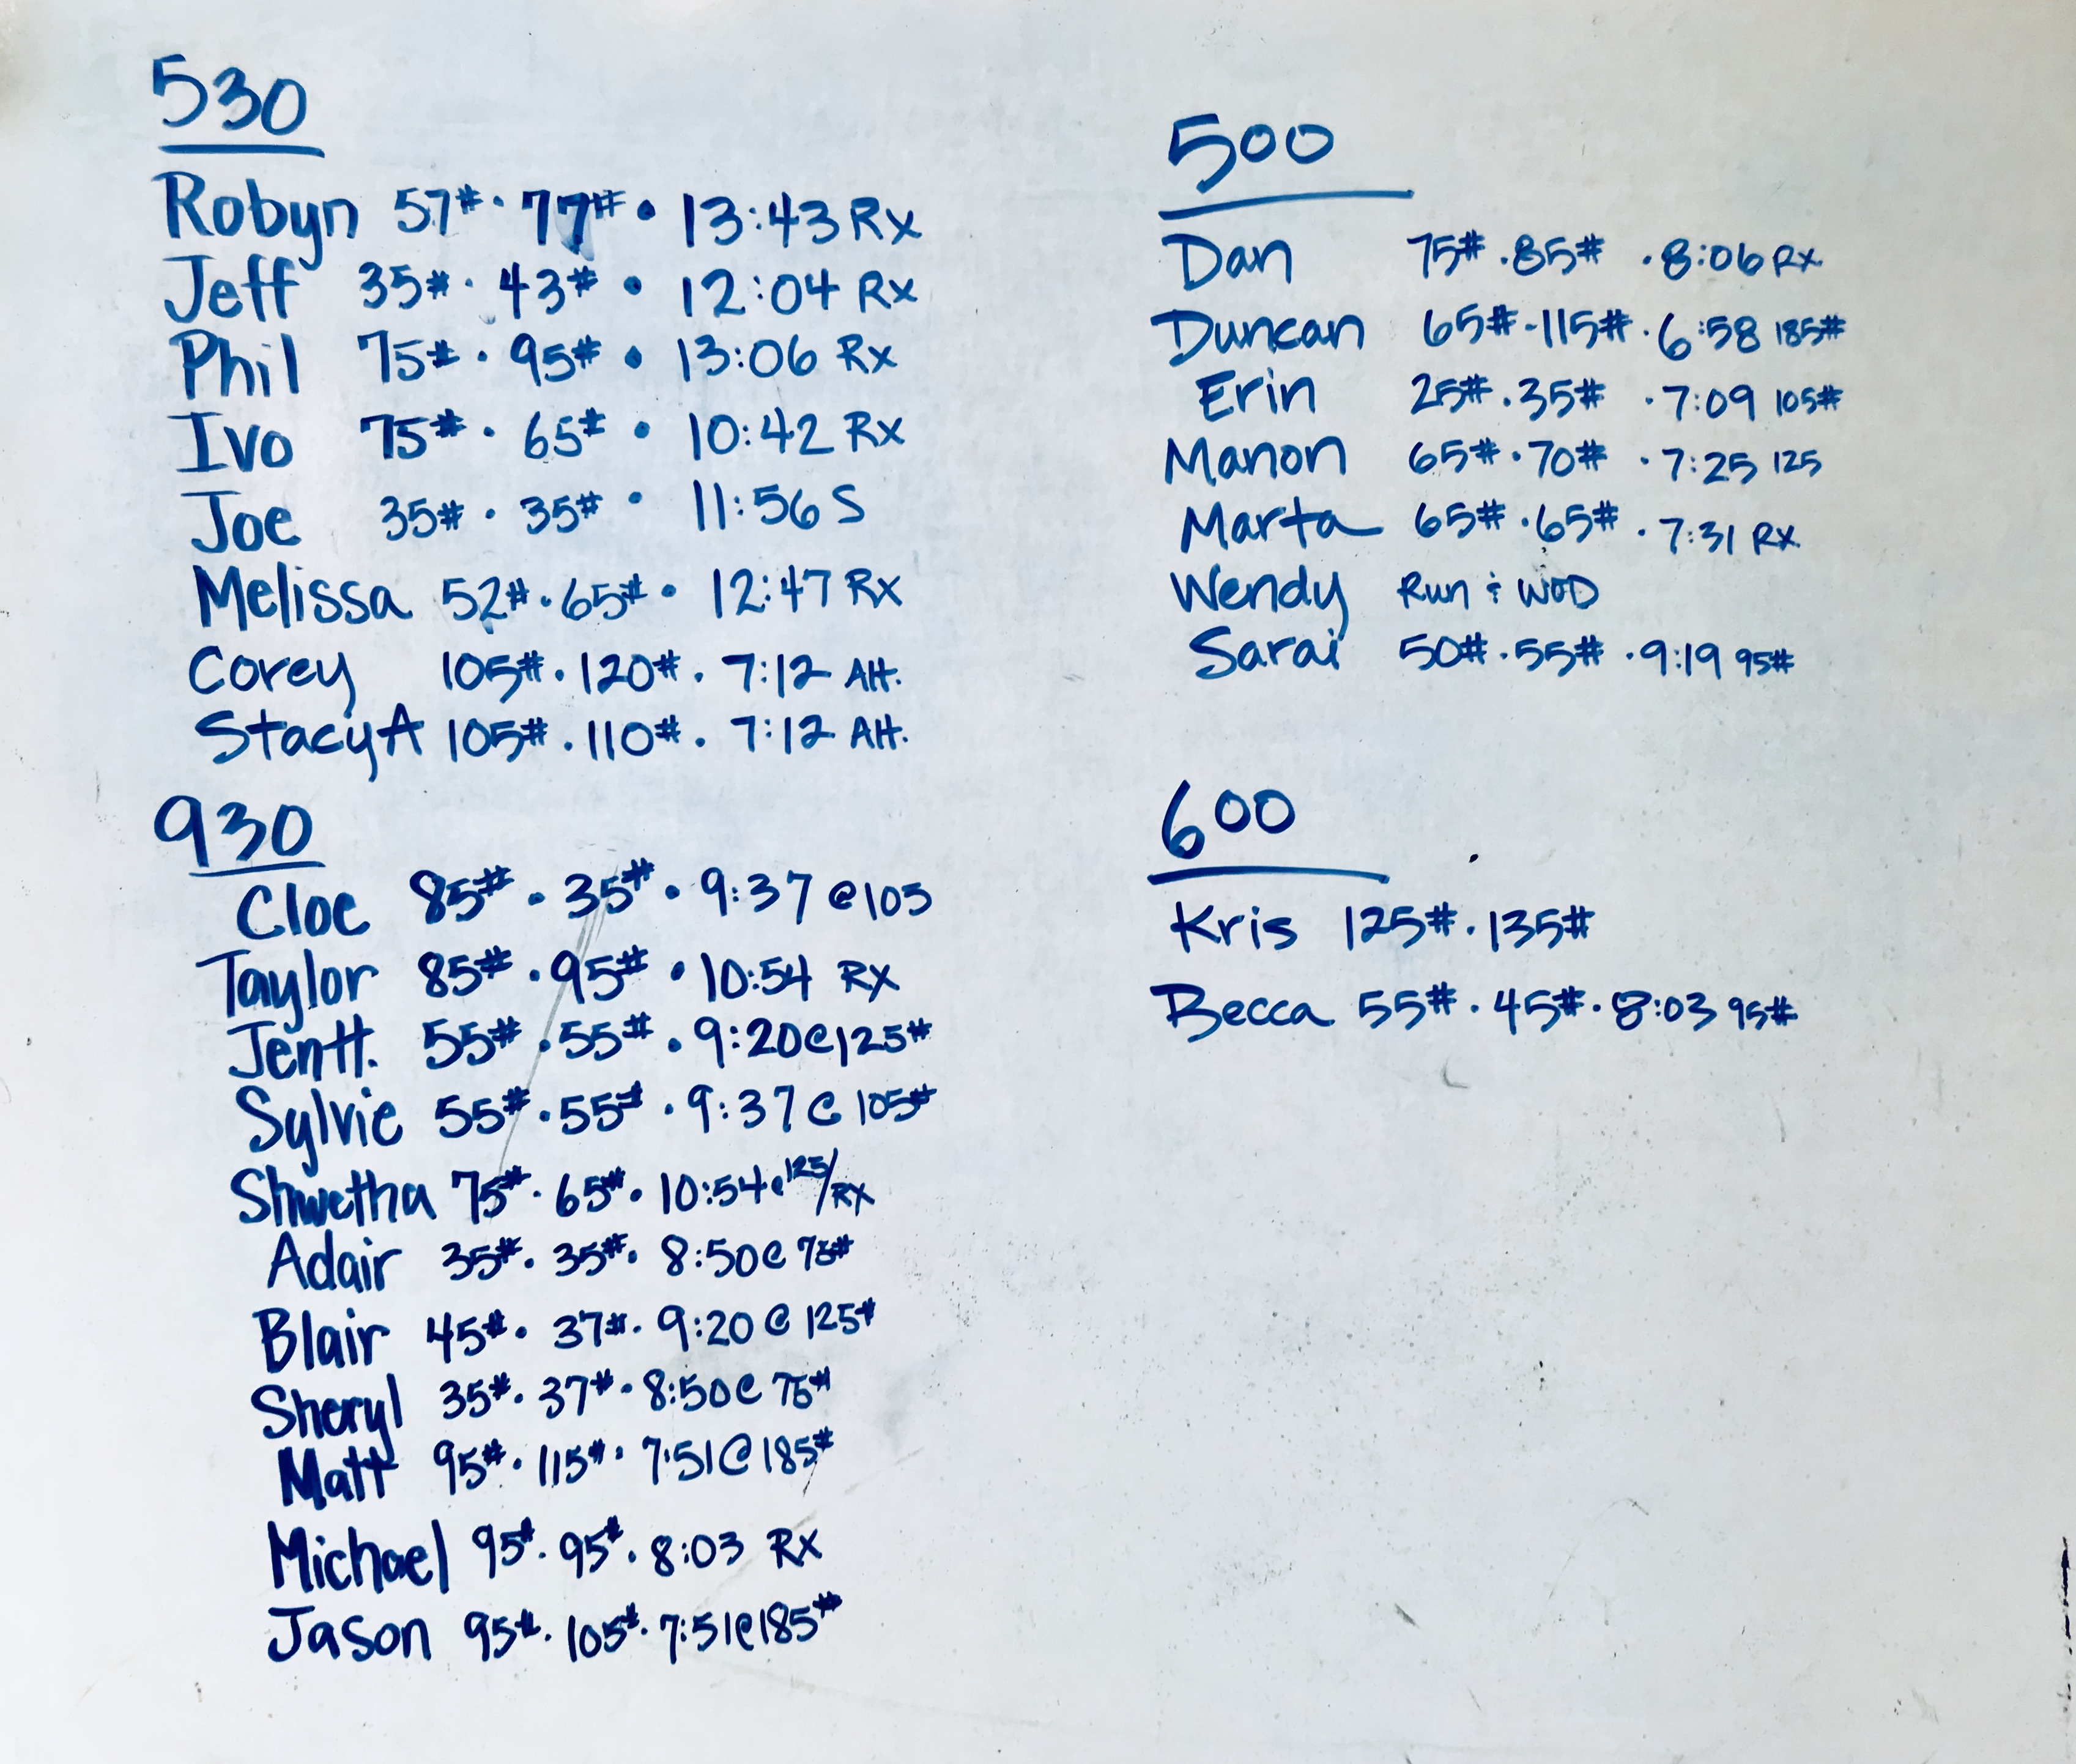 530
Robyn 57# · 77# • 13:43 Rx
Jeff 35# · 43# • 12:04 Rx
Phil 75# · 95# • 13:06 Rx
Ivo 75# · 65# • 10:42 Rx
Joe 35# · 35# • 11:56 S
Melissa 52# · 65# • 12:47 Rx
Corey 105# · 120# · 7:12 Alt.
Stacy A 105# · 110# · 7:12 Alt.
930
Cloe 85# · 35# • 9:37 @105
Taylor 85# · 95# • 10:54 RX
Jen H. 55# · 55# • 9:20@125#
Sylvie 55# · 55# · 9:37@ 105#
Shwetha 75# · 65# · 10:54@125/RX
Adair 35# · 35# · 8:50@ 75#
Blair 45# · 37# · 9:20@ 125#
Sheryl 35# · 37# · 8:50@ 75#
Matt 95# · 115# · 7:51@ 185#
Michael 95# · 95# · 8:03 RX
Jason 95# · 105# · 7:51@185#
500
Dan 75# · 85# · 8:06 Rx
Duncan 65# · 115# · 6:58 185#
Erin 25# · 35# · 7:09 105#
Manon 65# · 70# · 7:25 125
Marta 65# · 65# · 7:31 Rx
Wendy Run & WOD
Sarai 50# · 55# · 9:19 95#
600
Kris 125# · 135#
Becca 55# · 45# · 8:03 95#